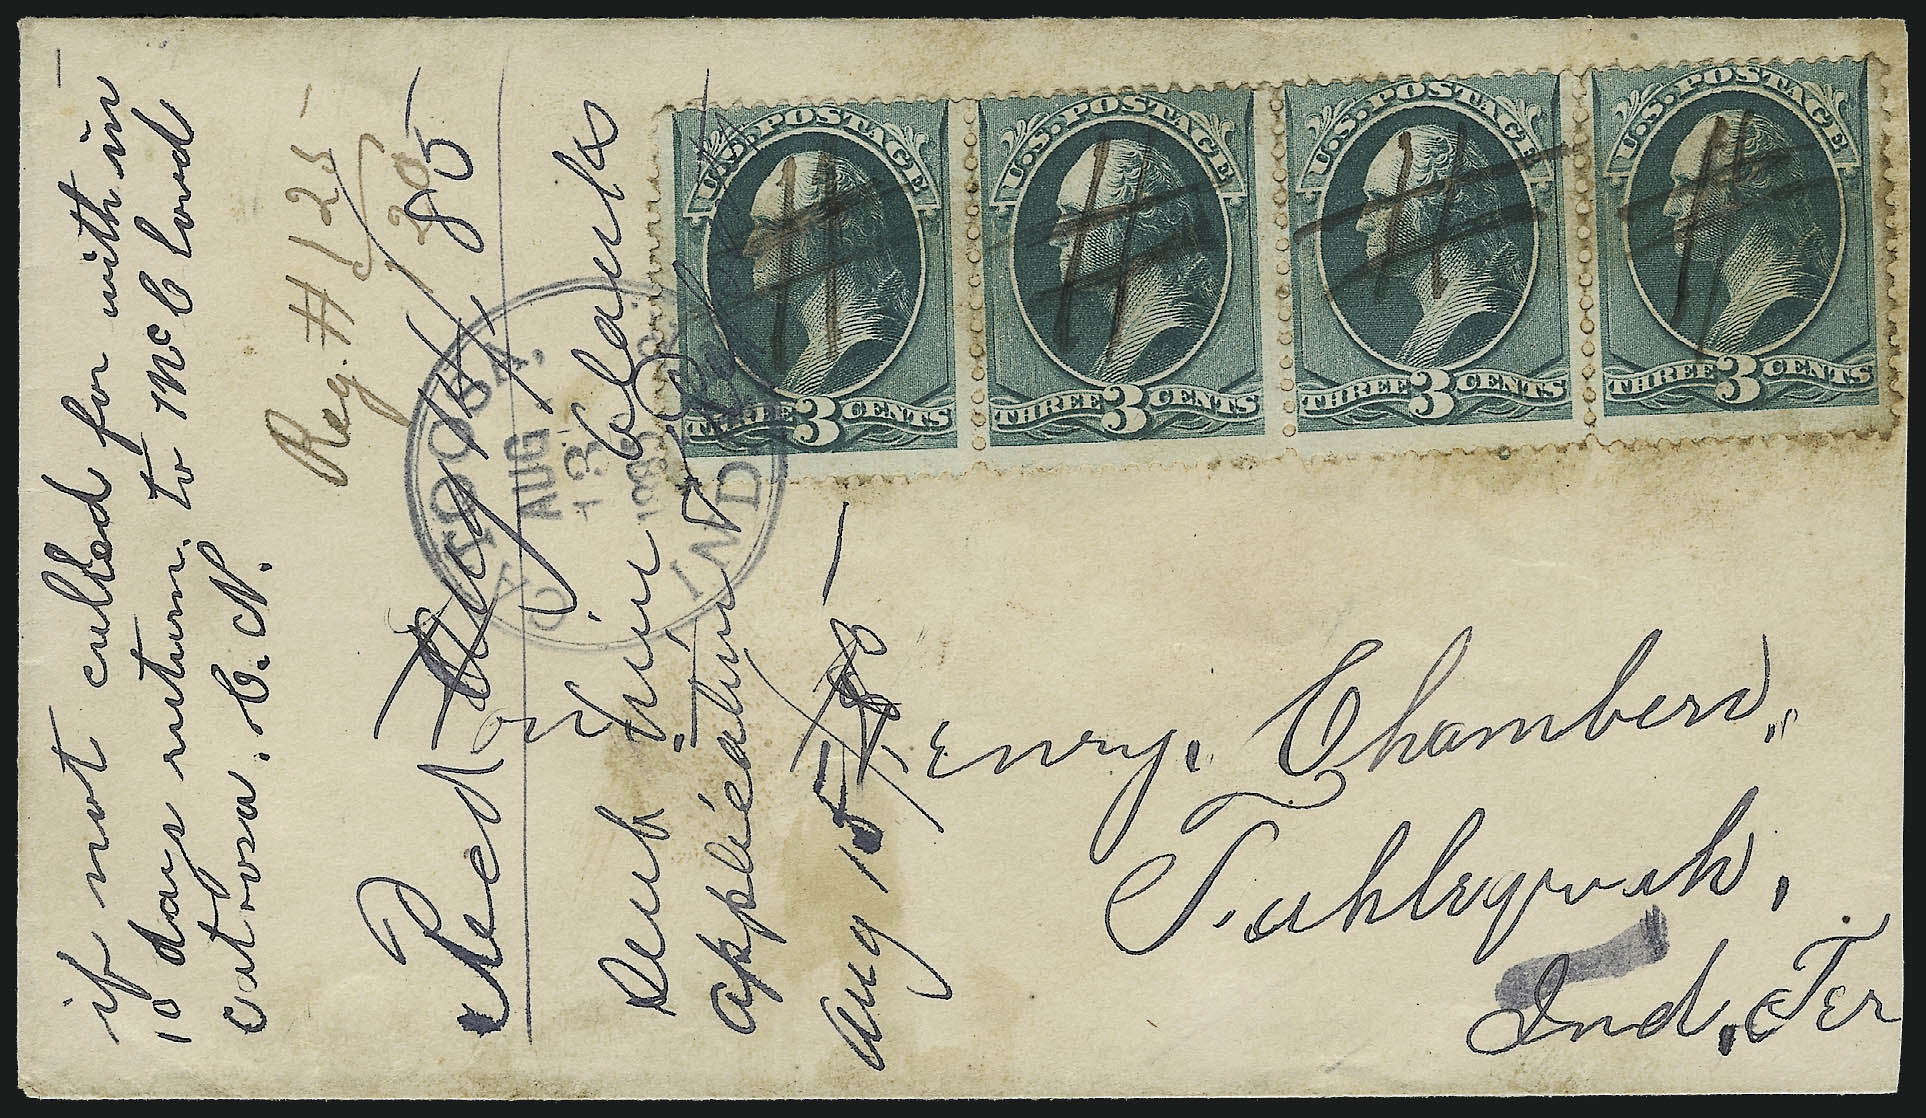 if not called for with in
10 days return. to McCloud
Catoosa. C. N.
Reg. #125
Recd Aug 14/85
on
Sent
Aug 15
U.S. POSTAGE
THREE 3 CENTS
U.S. POSTAGE
THREE 3 CENTS
U.S. POSTAGE
THREE 3 CENTS
U.S. POSTAGE
THREE 3 CENTS
CATOOSA,
AUG
13
1885
IND
Henry. Chambers.
Tahlequah.
Ind, Ter